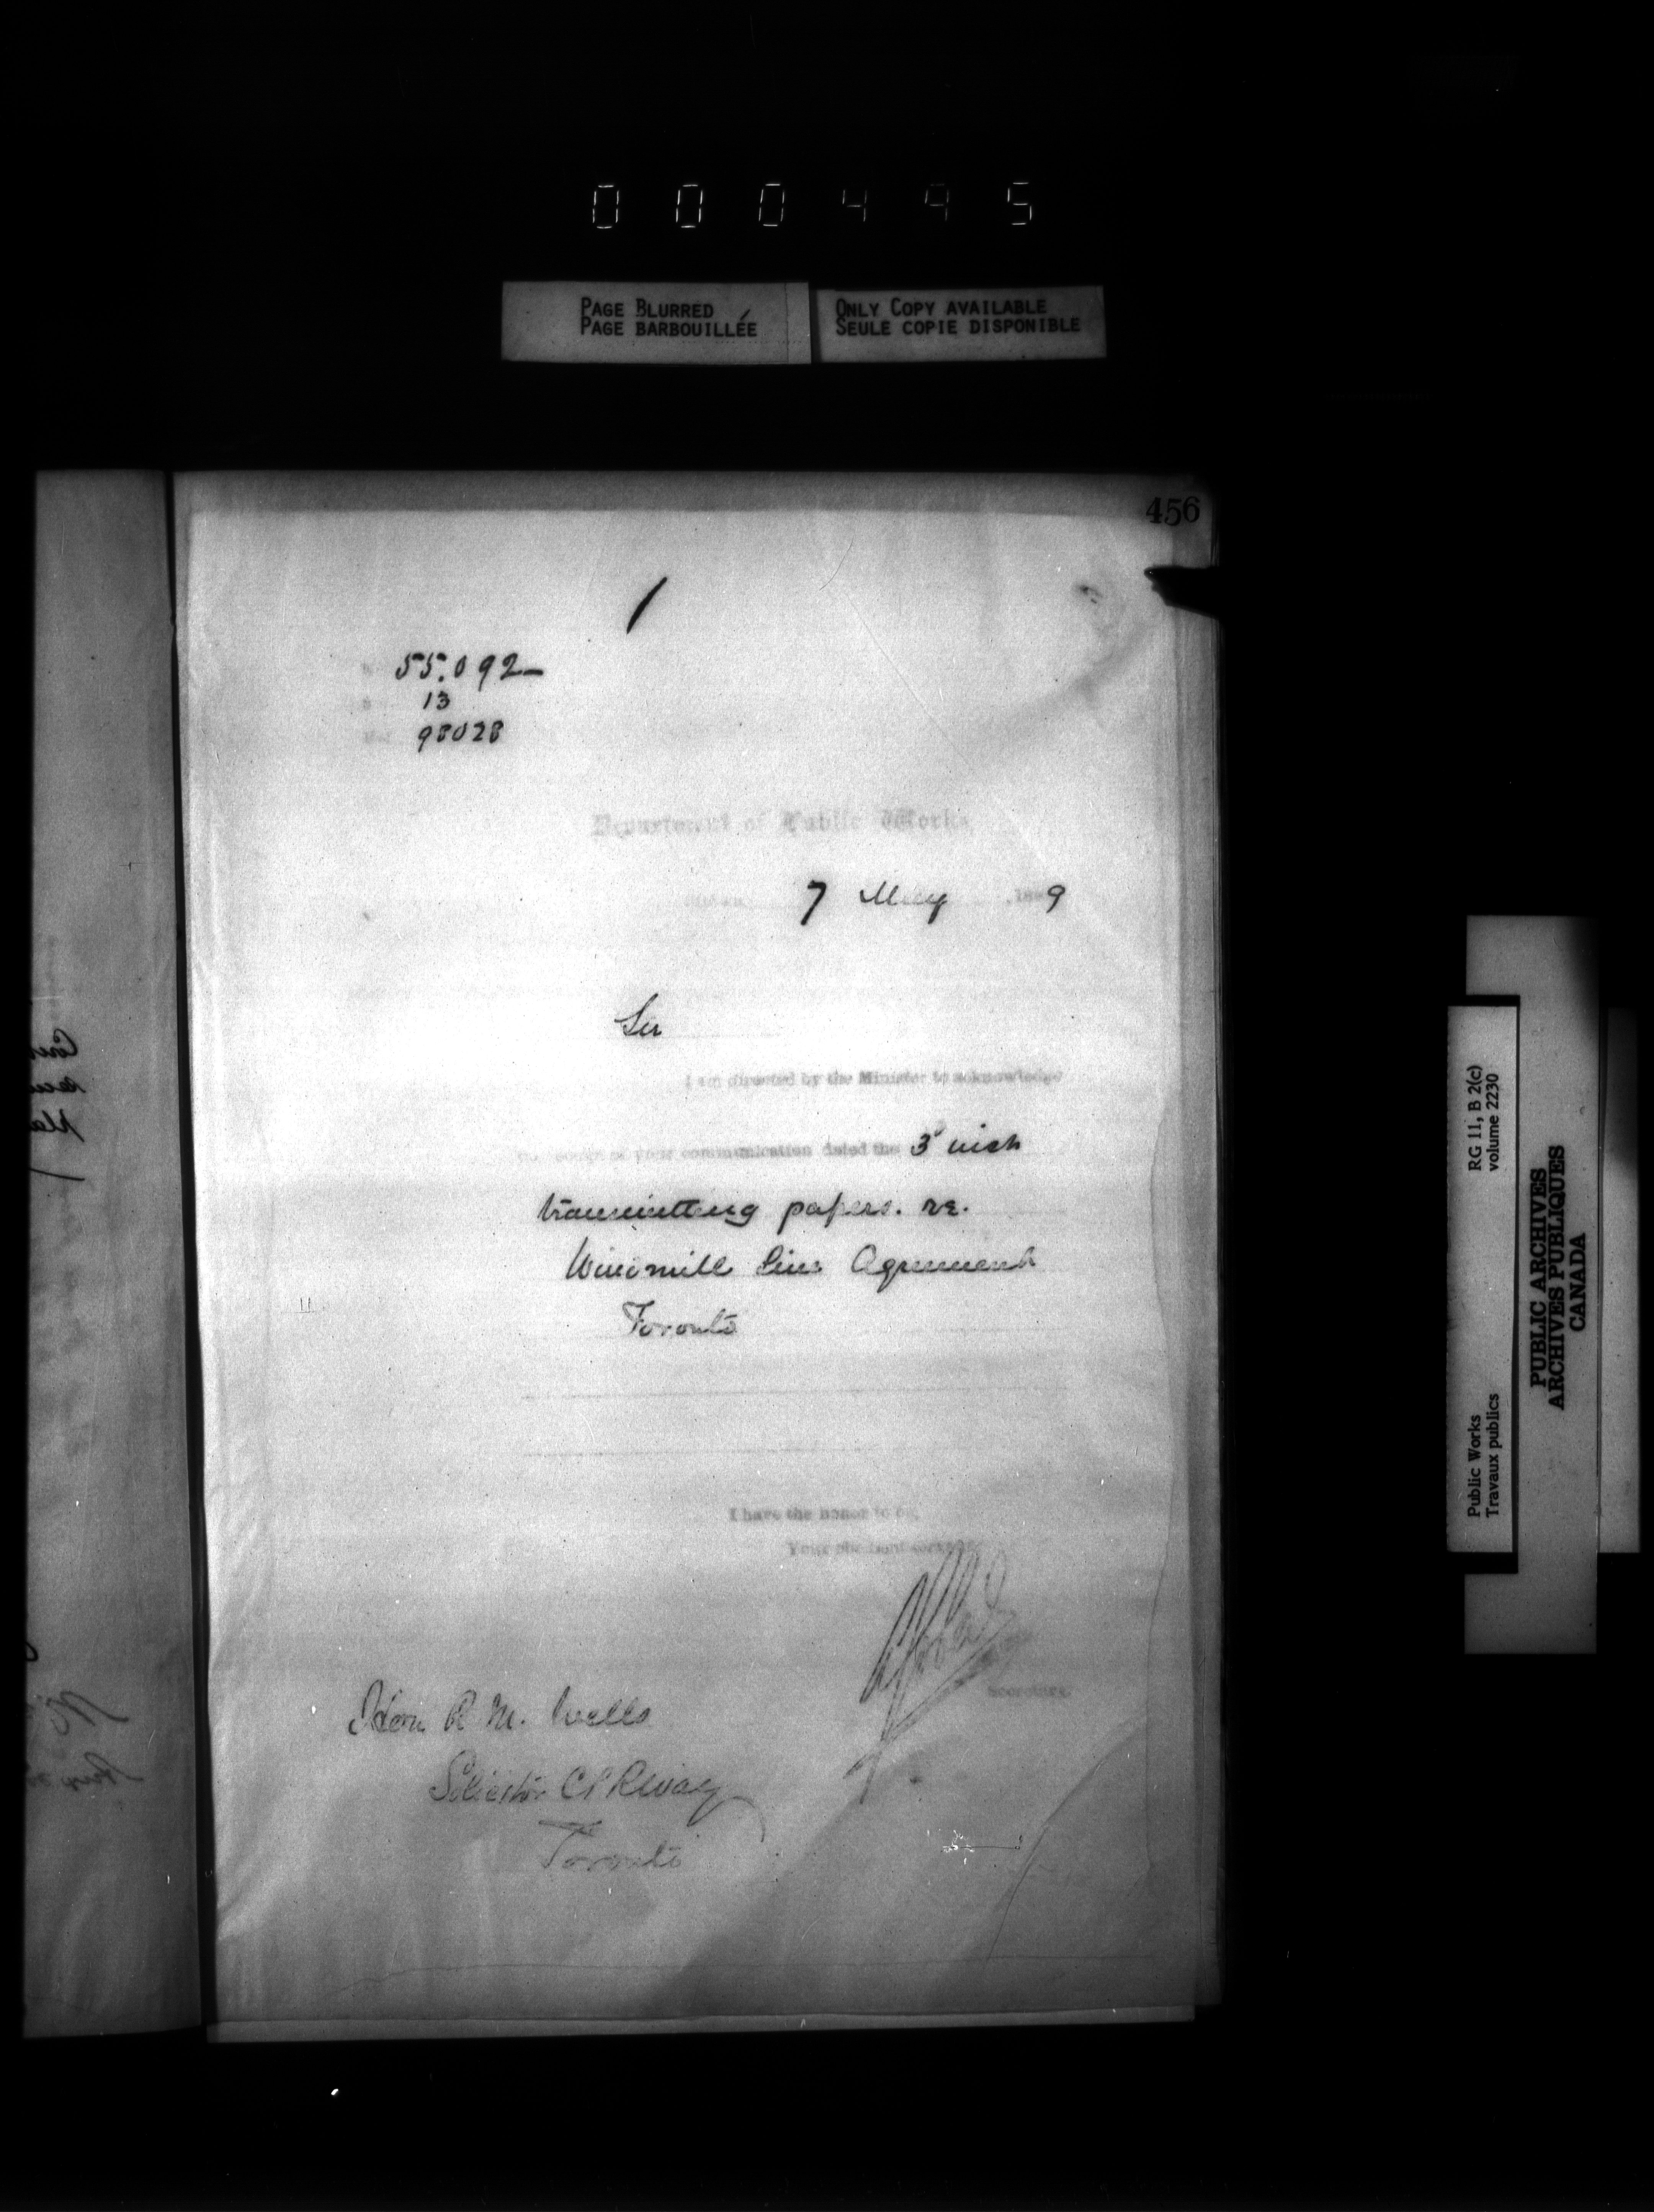 000495
PAGE BLURRED
PAGE BARBOUILLÉE
ONLY COPY AVAILABLE
SEULE COPIE DISPONIBLE
456
55.092
13
98028
Department of Public Works
7 May 1889
Sir
I am directed by the Minister to acknowledge
your communication dated the 3 inst
transmitting papers. re.
Windmill Line Agreement
Toronto
I have the honor to be,
Your obedient servant
Secretary
Hon R M. Wells
Solicitor C P Rway
Toronto
Public Works
Travaux publics
RG 11, B 2(c)
volume 2230
PUBLIC ARCHIVES
ARCHIVES PUBLIQUES
CANADA